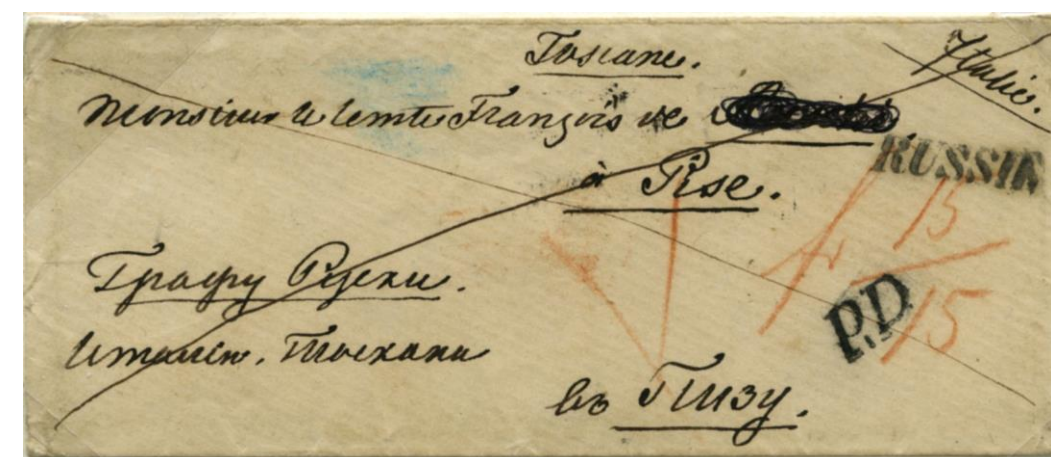 Toscane.
Italie.
Monsieur le Comte François de
RUSSIE
à Pise.
fr 15/15
P.D
Графу Руски.
Италiя. Тоскана
въ Пизу.